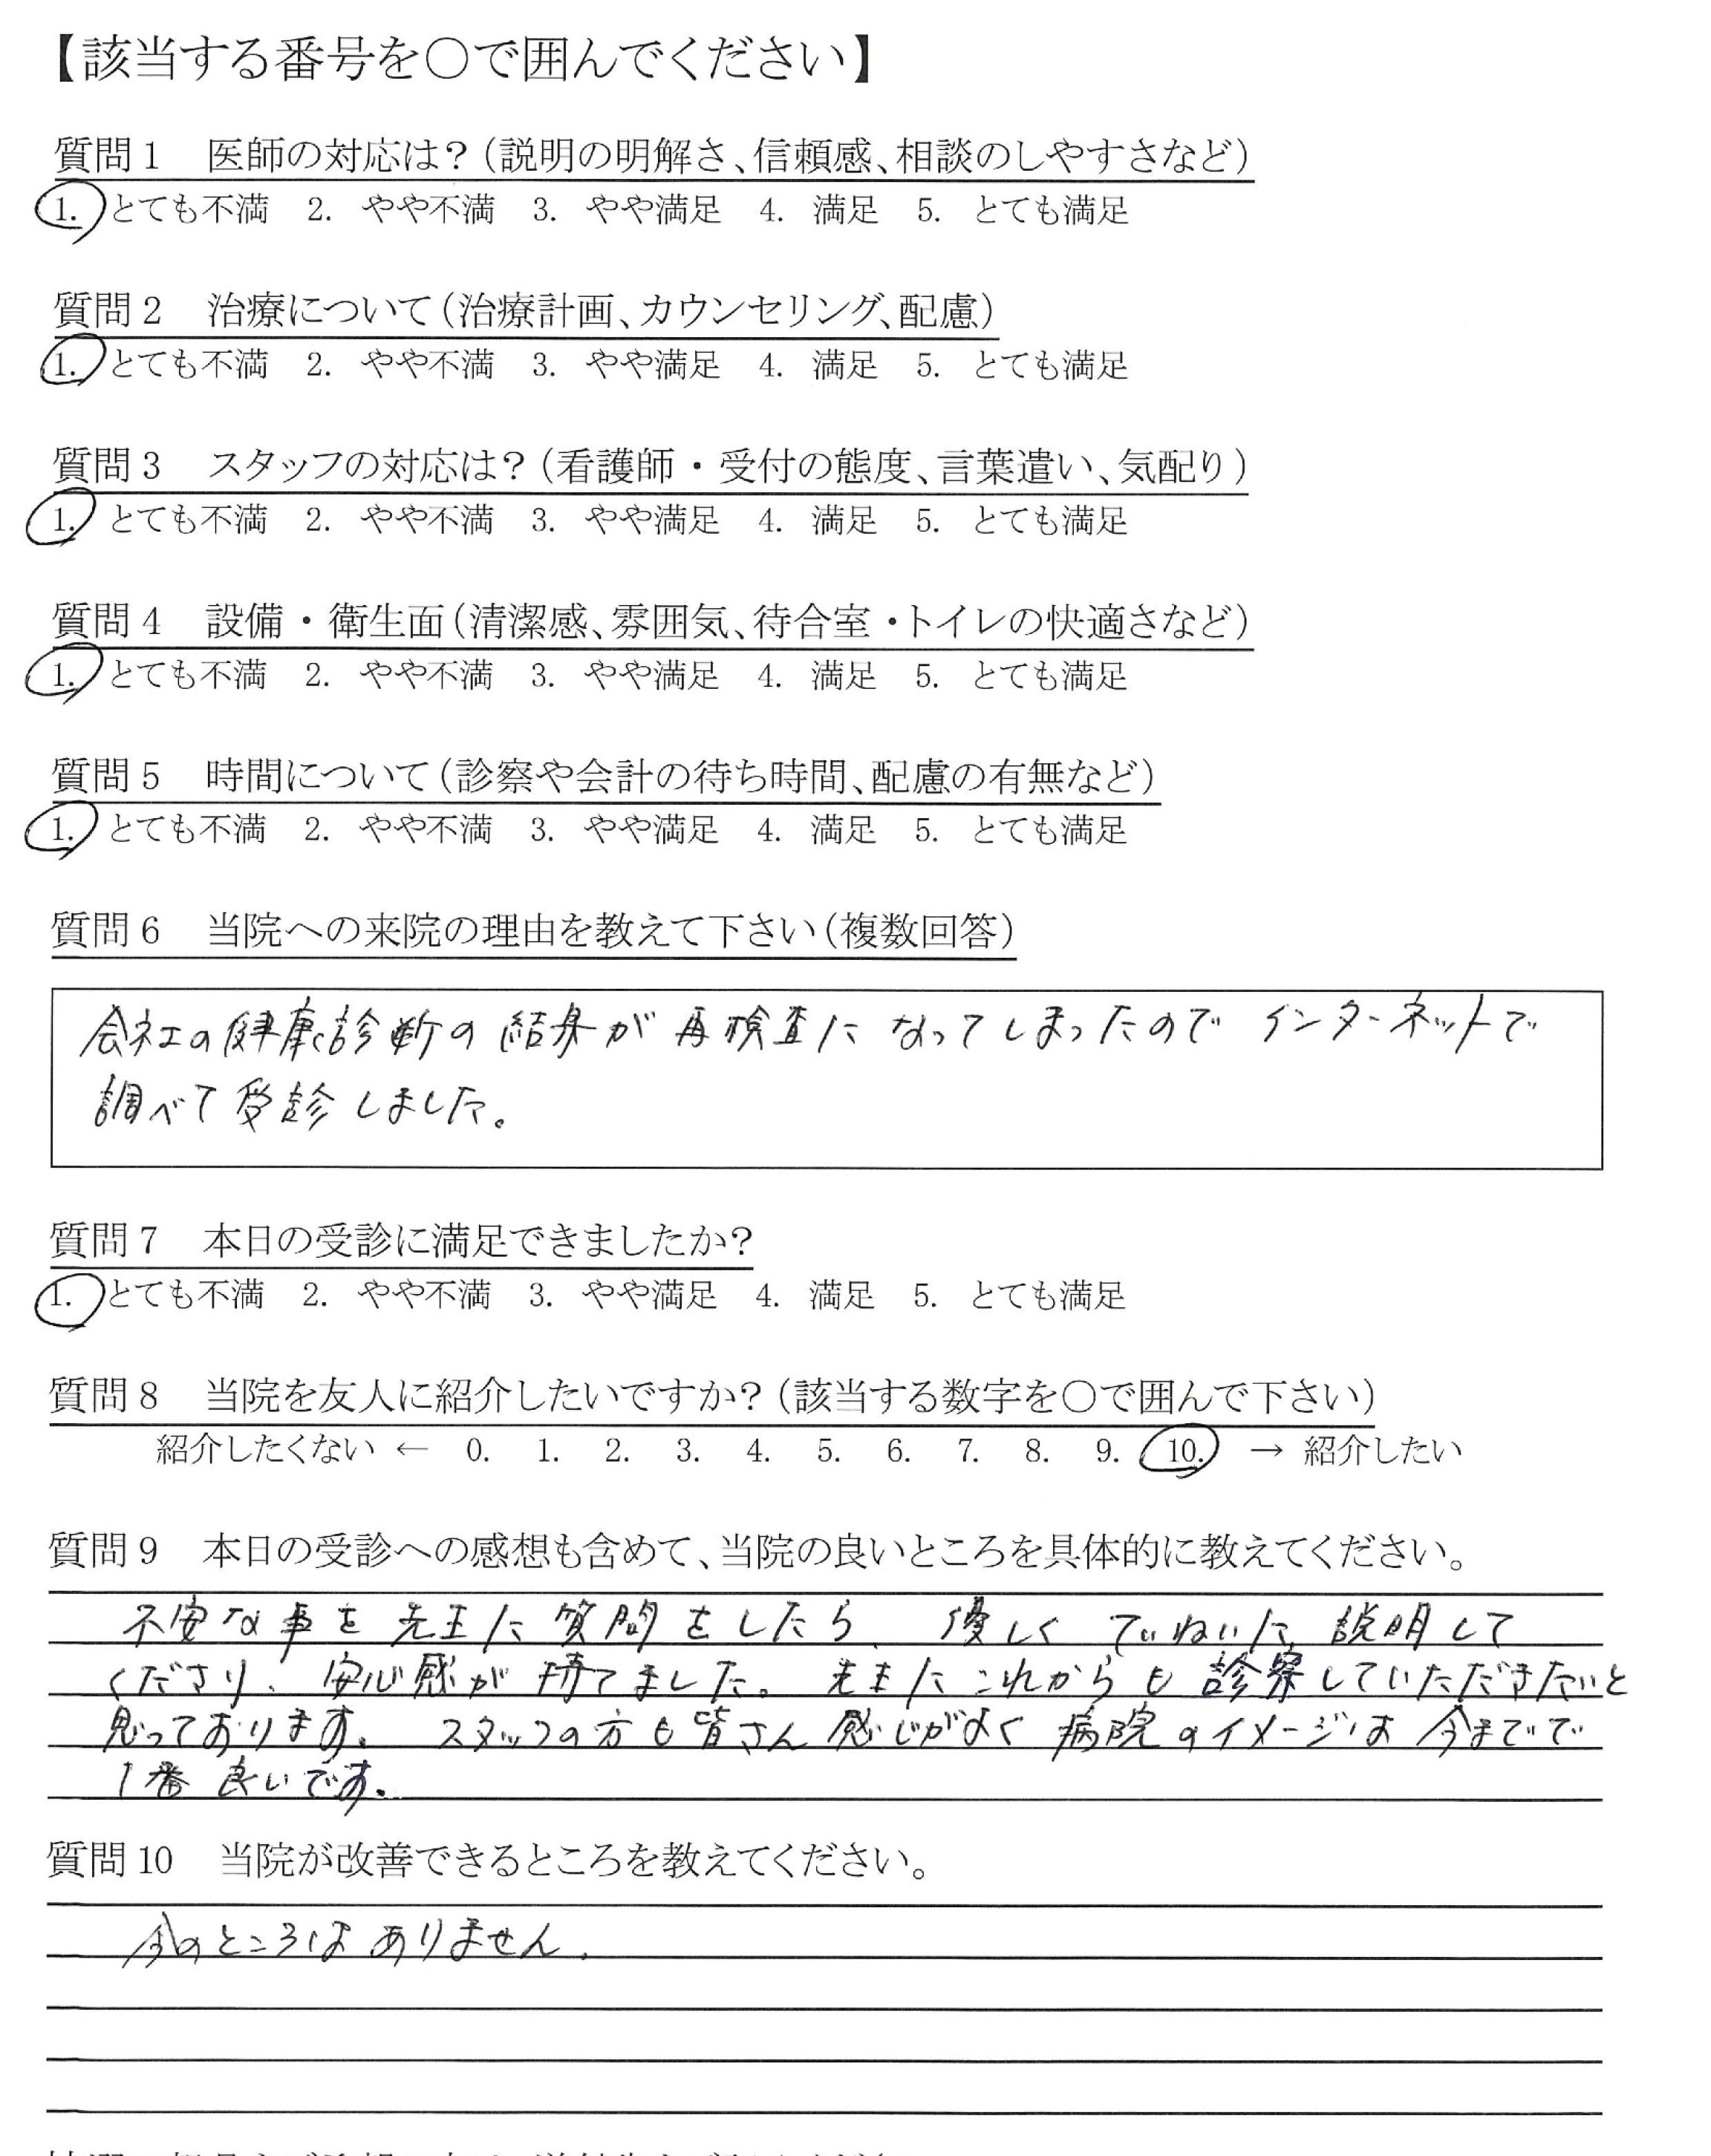 【該当する番号を○で囲んでください】
質問1　医師の対応は？（説明の明解さ、信頼感、相談のしやすさなど）
1.　とても不満　2.　やや不満　3.　やや満足　4.　満足　5.　とても満足
質問2　治療について（治療計画、カウンセリング、配慮）
1.　とても不満　2.　やや不満　3.　やや満足　4.　満足　5.　とても満足
質問3　スタッフの対応は？（看護師・受付の態度、言葉遣い、気配り）
1.　とても不満　2.　やや不満　3.　やや満足　4.　満足　5.　とても満足
質問4　設備・衛生面（清潔感、雰囲気、待合室・トイレの快適さなど）
1.　とても不満　2.　やや不満　3.　やや満足　4.　満足　5.　とても満足
質問5　時間について（診察や会計の待ち時間、配慮の有無など）
1.　とても不満　2.　やや不満　3.　やや満足　4.　満足　5.　とても満足
質問6　当院への来院の理由を教えて下さい（複数回答）
会社の健康診断の結果が再検査になってしまったのでインターネットで
調べて受診しました。
質問7　本日の受診に満足できましたか？
1.　とても不満　2.　やや不満　3.　やや満足　4.　満足　5.　とても満足
質問8　当院を友人に紹介したいですか？（該当する数字を○で囲んで下さい）
紹介したくない ←　0.　1.　2.　3.　4.　5.　6.　7.　8.　9.　10.　→ 紹介したい
質問9　本日の受診への感想も含めて、当院の良いところを具体的に教えてください。
不安な事を先生に質問をしたら、優しくていねいに説明して
くださり、安心感が持てました。先生にこれからも診察していただきたいと
思っております。スタッフの方も皆さん感じがよく病院のイメージは今までで
1番良いです。
質問10　当院が改善できるところを教えてください。
今のところはありません。